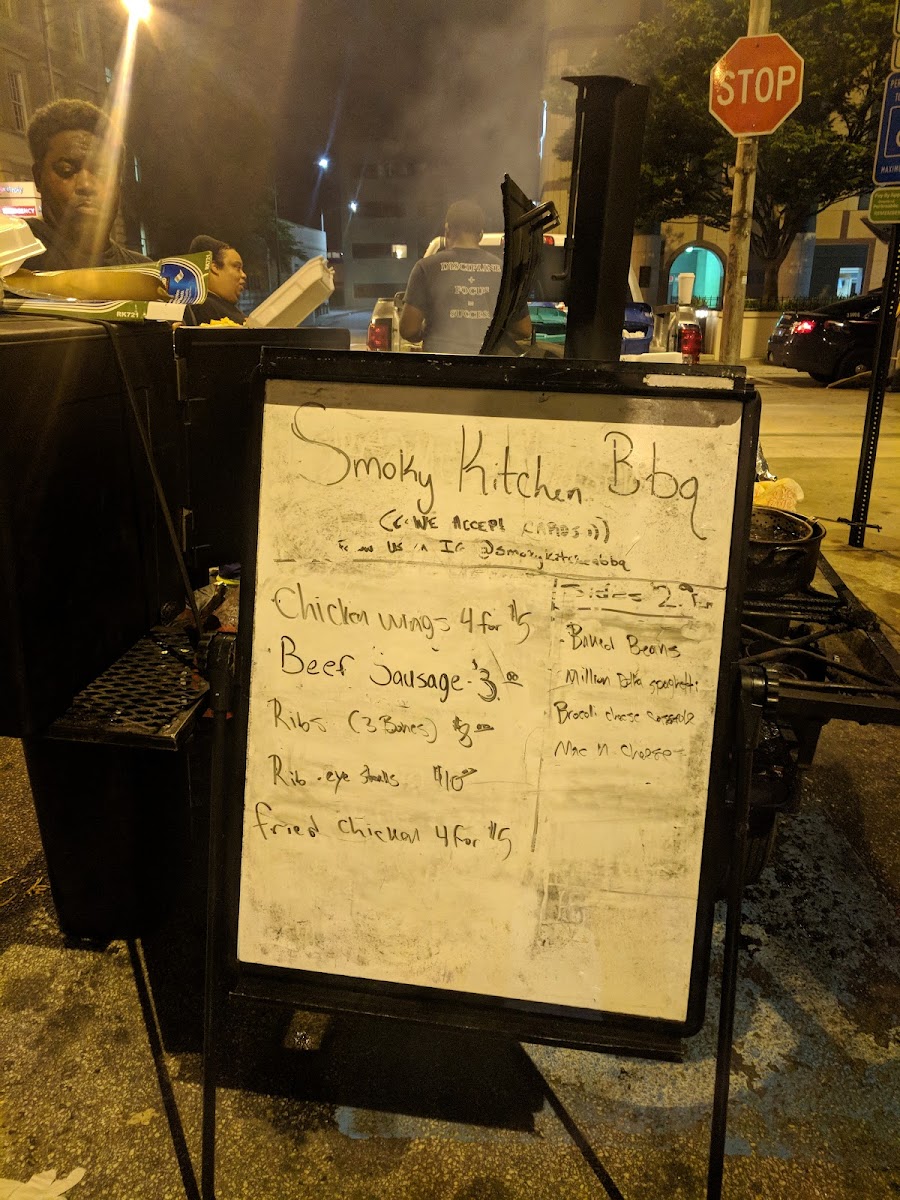 STOP
DISCIPLINE
+
FOCUS
=
SUCCESS
RK721
Smoky Kitchen Bbq
(((WE ACCEPT CARDS)))
Follow us on IG @smokykitchenbbq
Chicken wings 4 for $5
Beef Sausage - $3.00
Ribs (3 Bones) $3.00
Rib-eye $10.00
fried chicken 4 for $5
Sides
- Baked Beans
- Million Dolla spaghetti
- Brocoli cheese casserole
Mac n cheese